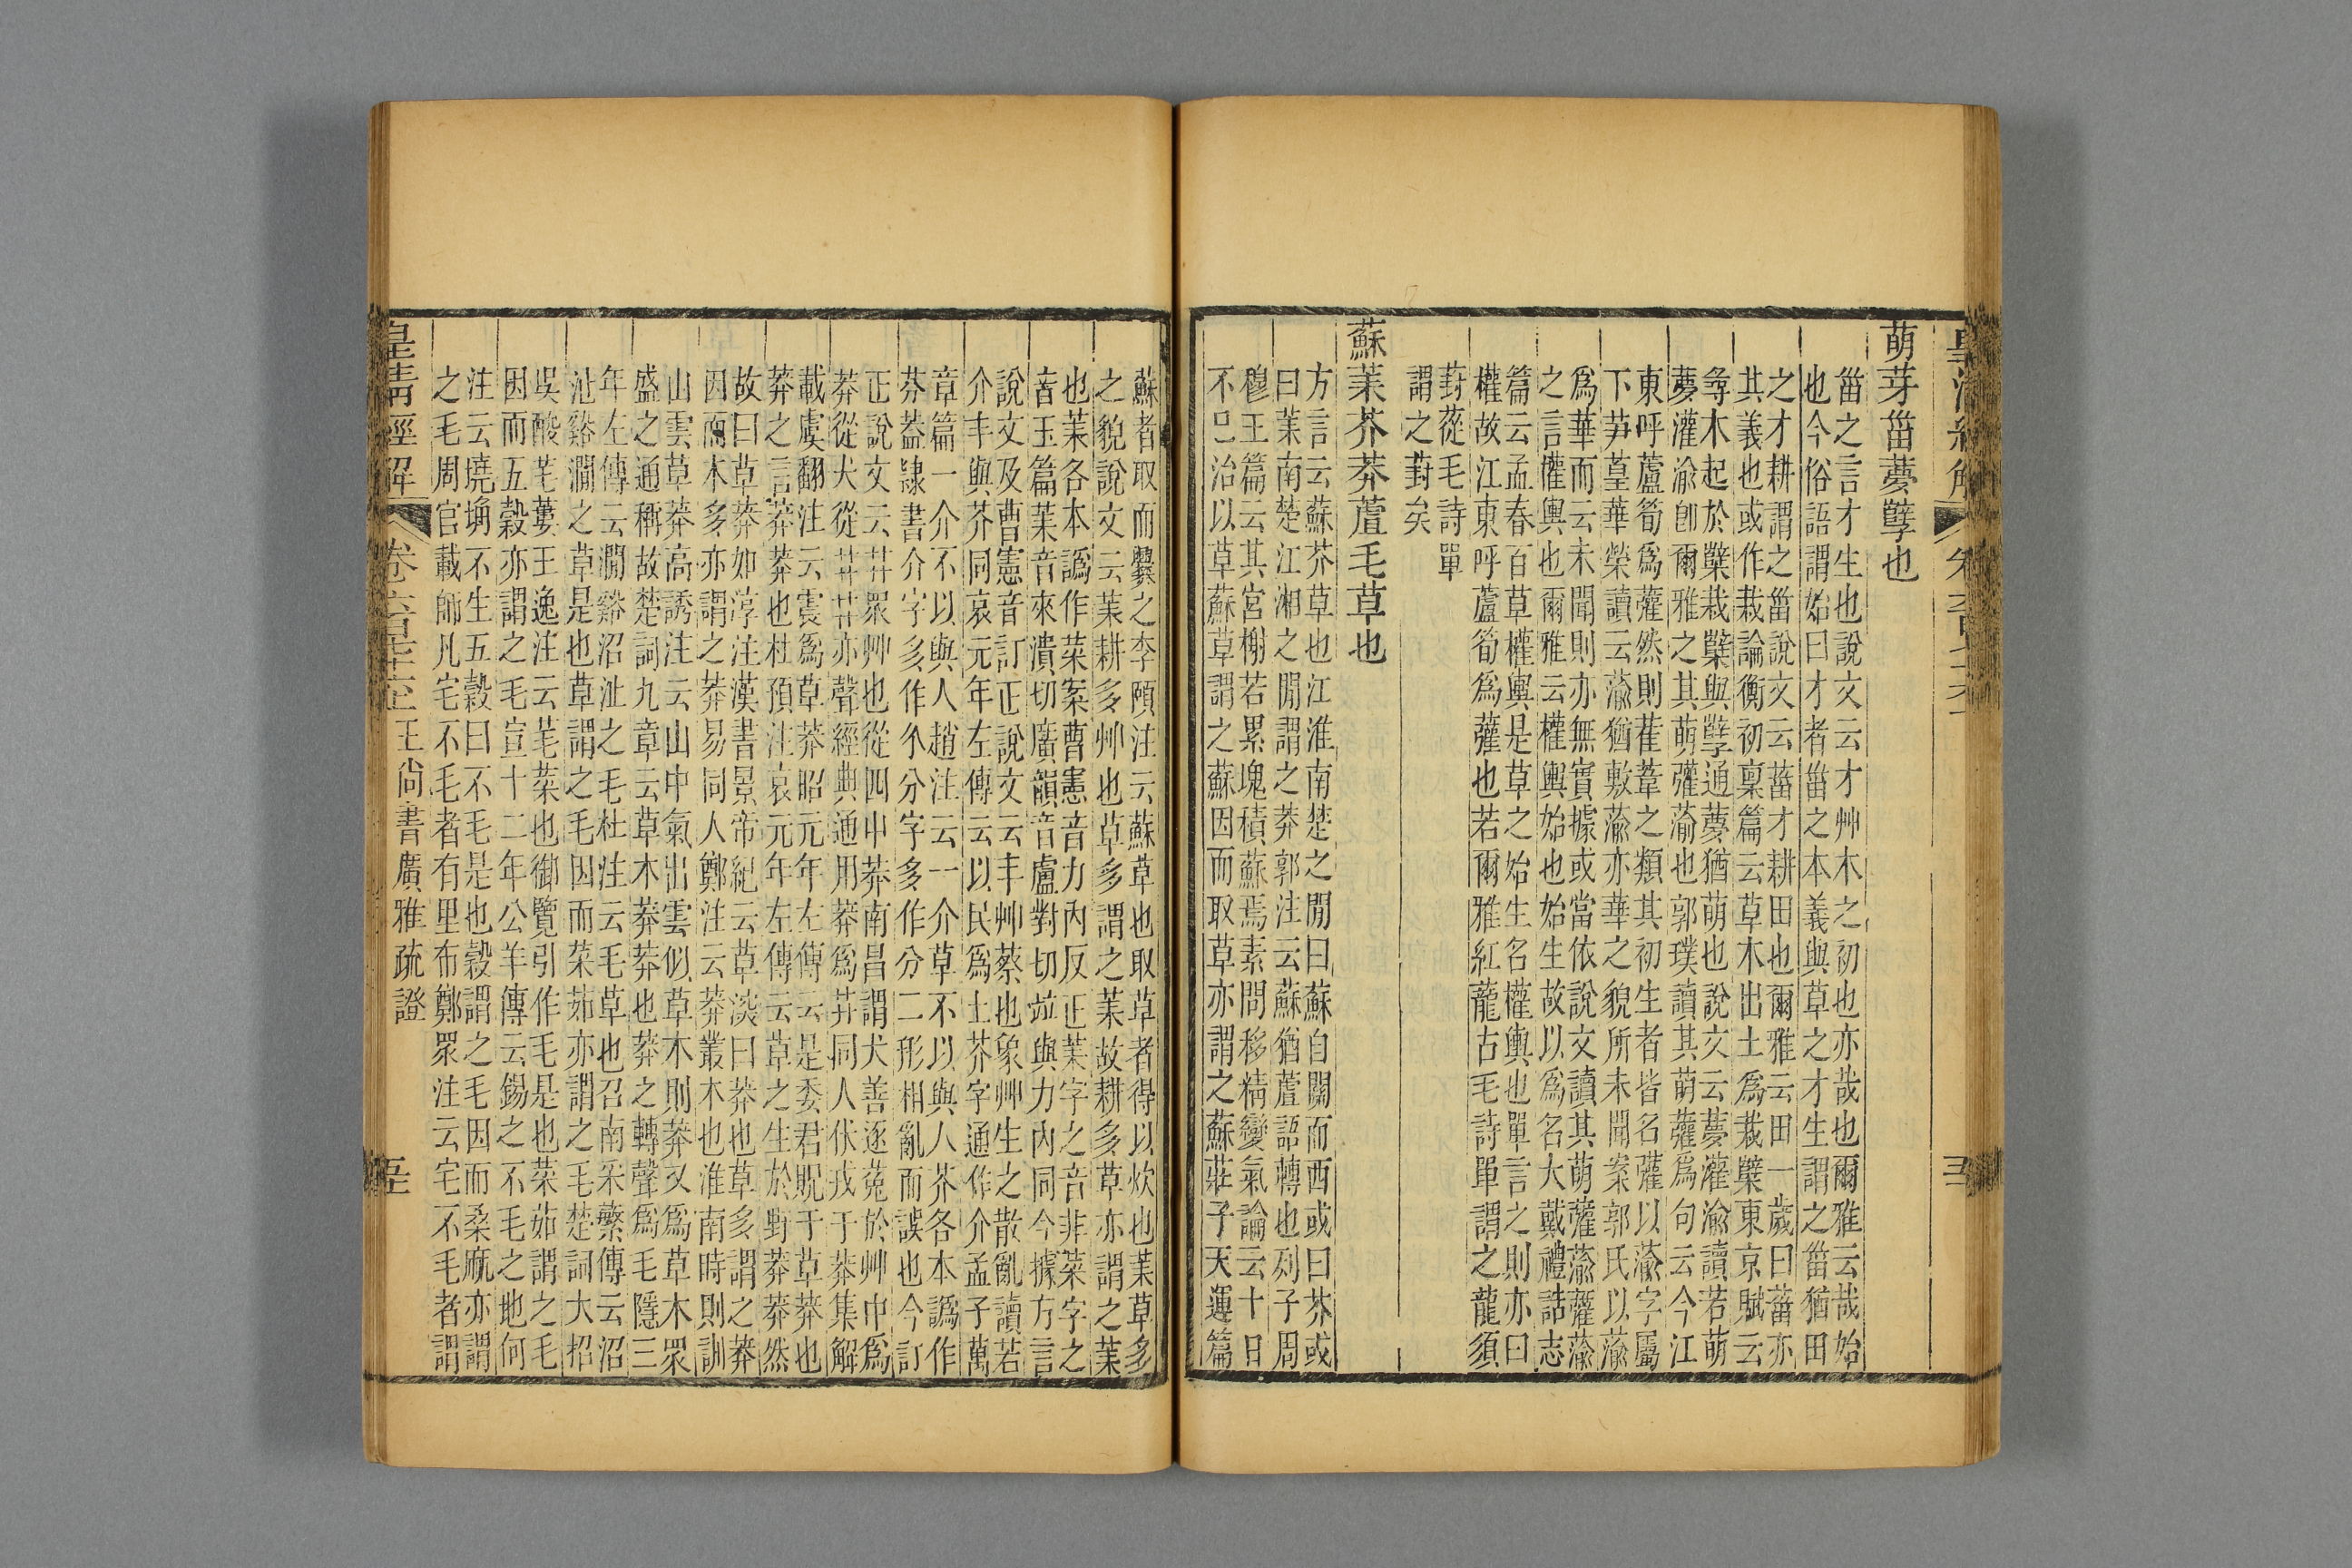 萌芽甾夢孼也
甾之言才生也說文云才艸木之初也亦哉也爾雅云哉始
也今俗語謂始曰才者甾之本義與草之才生謂之甾猶田
之才耕謂之甾說文云葘才耕田也爾雅云田一歲曰葘亦
其義也或作栽論衡初稟篇云草木出土爲栽櫱東京賦云
尋木起於櫱栽櫱與孼通夢猶萌也說文云夢灌渝讀若萌
夢灌渝卽爾雅之其萌虇蕍也郭璞讀其萌虇爲句云今江
東呼蘆筍爲虇然則萑葦之類其初生者皆名虇以蕍字屬
下芛葟華榮讀云蕍猶敷蕍亦華之貌所未聞案郭氏以蕍
爲華而云未聞則亦無實據或當依說文讀其萌虇蕍虇蕍
之言權輿也爾雅云權輿始也始生故以爲名大戴禮誥志
篇云孟春百草權輿是草之始生名權輿也單言之則亦曰
權故江東呼蘆筍爲虇也若爾雅紅蘢古毛詩單謂之龍須
葑蓯毛詩單
謂之葑矣
蘇茉芥莽蒩毛草也
方言云蘇芥草也江淮南楚之閒曰蘇自關而西或曰草或曰芥或
曰茉南楚江湘之閒謂之莽郭注云蘇猶蒩語轉也列子周
穆王篇云其宮榭若累塊積蘇焉素問移精變氣論云十日
不巳治以草蘇草謂之蘇因而取草亦謂之蘇莊子天運篇
蘇者取而爨之李頤注云蘇草也取草者得以炊也茉草多
之貌說文云茉耕多艸也草多謂之茉故耕多草亦謂之茉
也茉各本譌作菜案曹憲音力內反正茉字之音非菜字之
音玉篇茉音來潰切廣韻音盧對切竝與力內同今據方言
說文及曹憲音訂正說文云丯艸蔡也象艸生之散亂讀若
介丯與芥同哀元年左傳云以民爲土芥字通作介孟子萬
章篇一介不以與人趙注云一介草不以與人芥各本譌作
芬葢隸書介字多作尒分字多作分二形相亂而誤也今訂
正說文云茻眾艸也從四屮莽南昌謂犬善逐菟於艸中爲
莽從犬從茻茻亦聲經典通用莽爲茻同人伏戎于莽集解
載虞翻注云震爲草莽昭元年左傳云是委君貺于草莽也
莽之言莽莽也杜預注哀元年左傳云草之生於野莽莽然
故曰草莽如淳注漢書景帝紀云草淡曰莽也草多謂之莽
因而木多亦謂之莽易同人鄭注云莽叢木也淮南時則訓
山雲草莽高誘注云山中氣出雲似草木則莽又爲草木眾
盛之通稱故楚詞九章云草木莽莽也莽之轉聲爲毛隱三
年左傳云澗谿沼沚之毛杜注云毛草也召南采蘩傳云沼
沚谿澗之草是也草謂之毛因而菜茹亦謂之毛楚詞大招
吳酸芼蔞王逸注云芼菜也御覽引作毛是也菜茹謂之毛
因而五穀亦謂之毛宣十二年公羊傳云錫之不毛之地何
注云墝埆不生五穀曰不毛是也穀謂之毛因而桑麻亦謂
之毛周官載師凡宅不毛者有里布鄭眾注云宅不毛者謂
皇清經解 卷六百七十六上 王尚書廣雅疏證